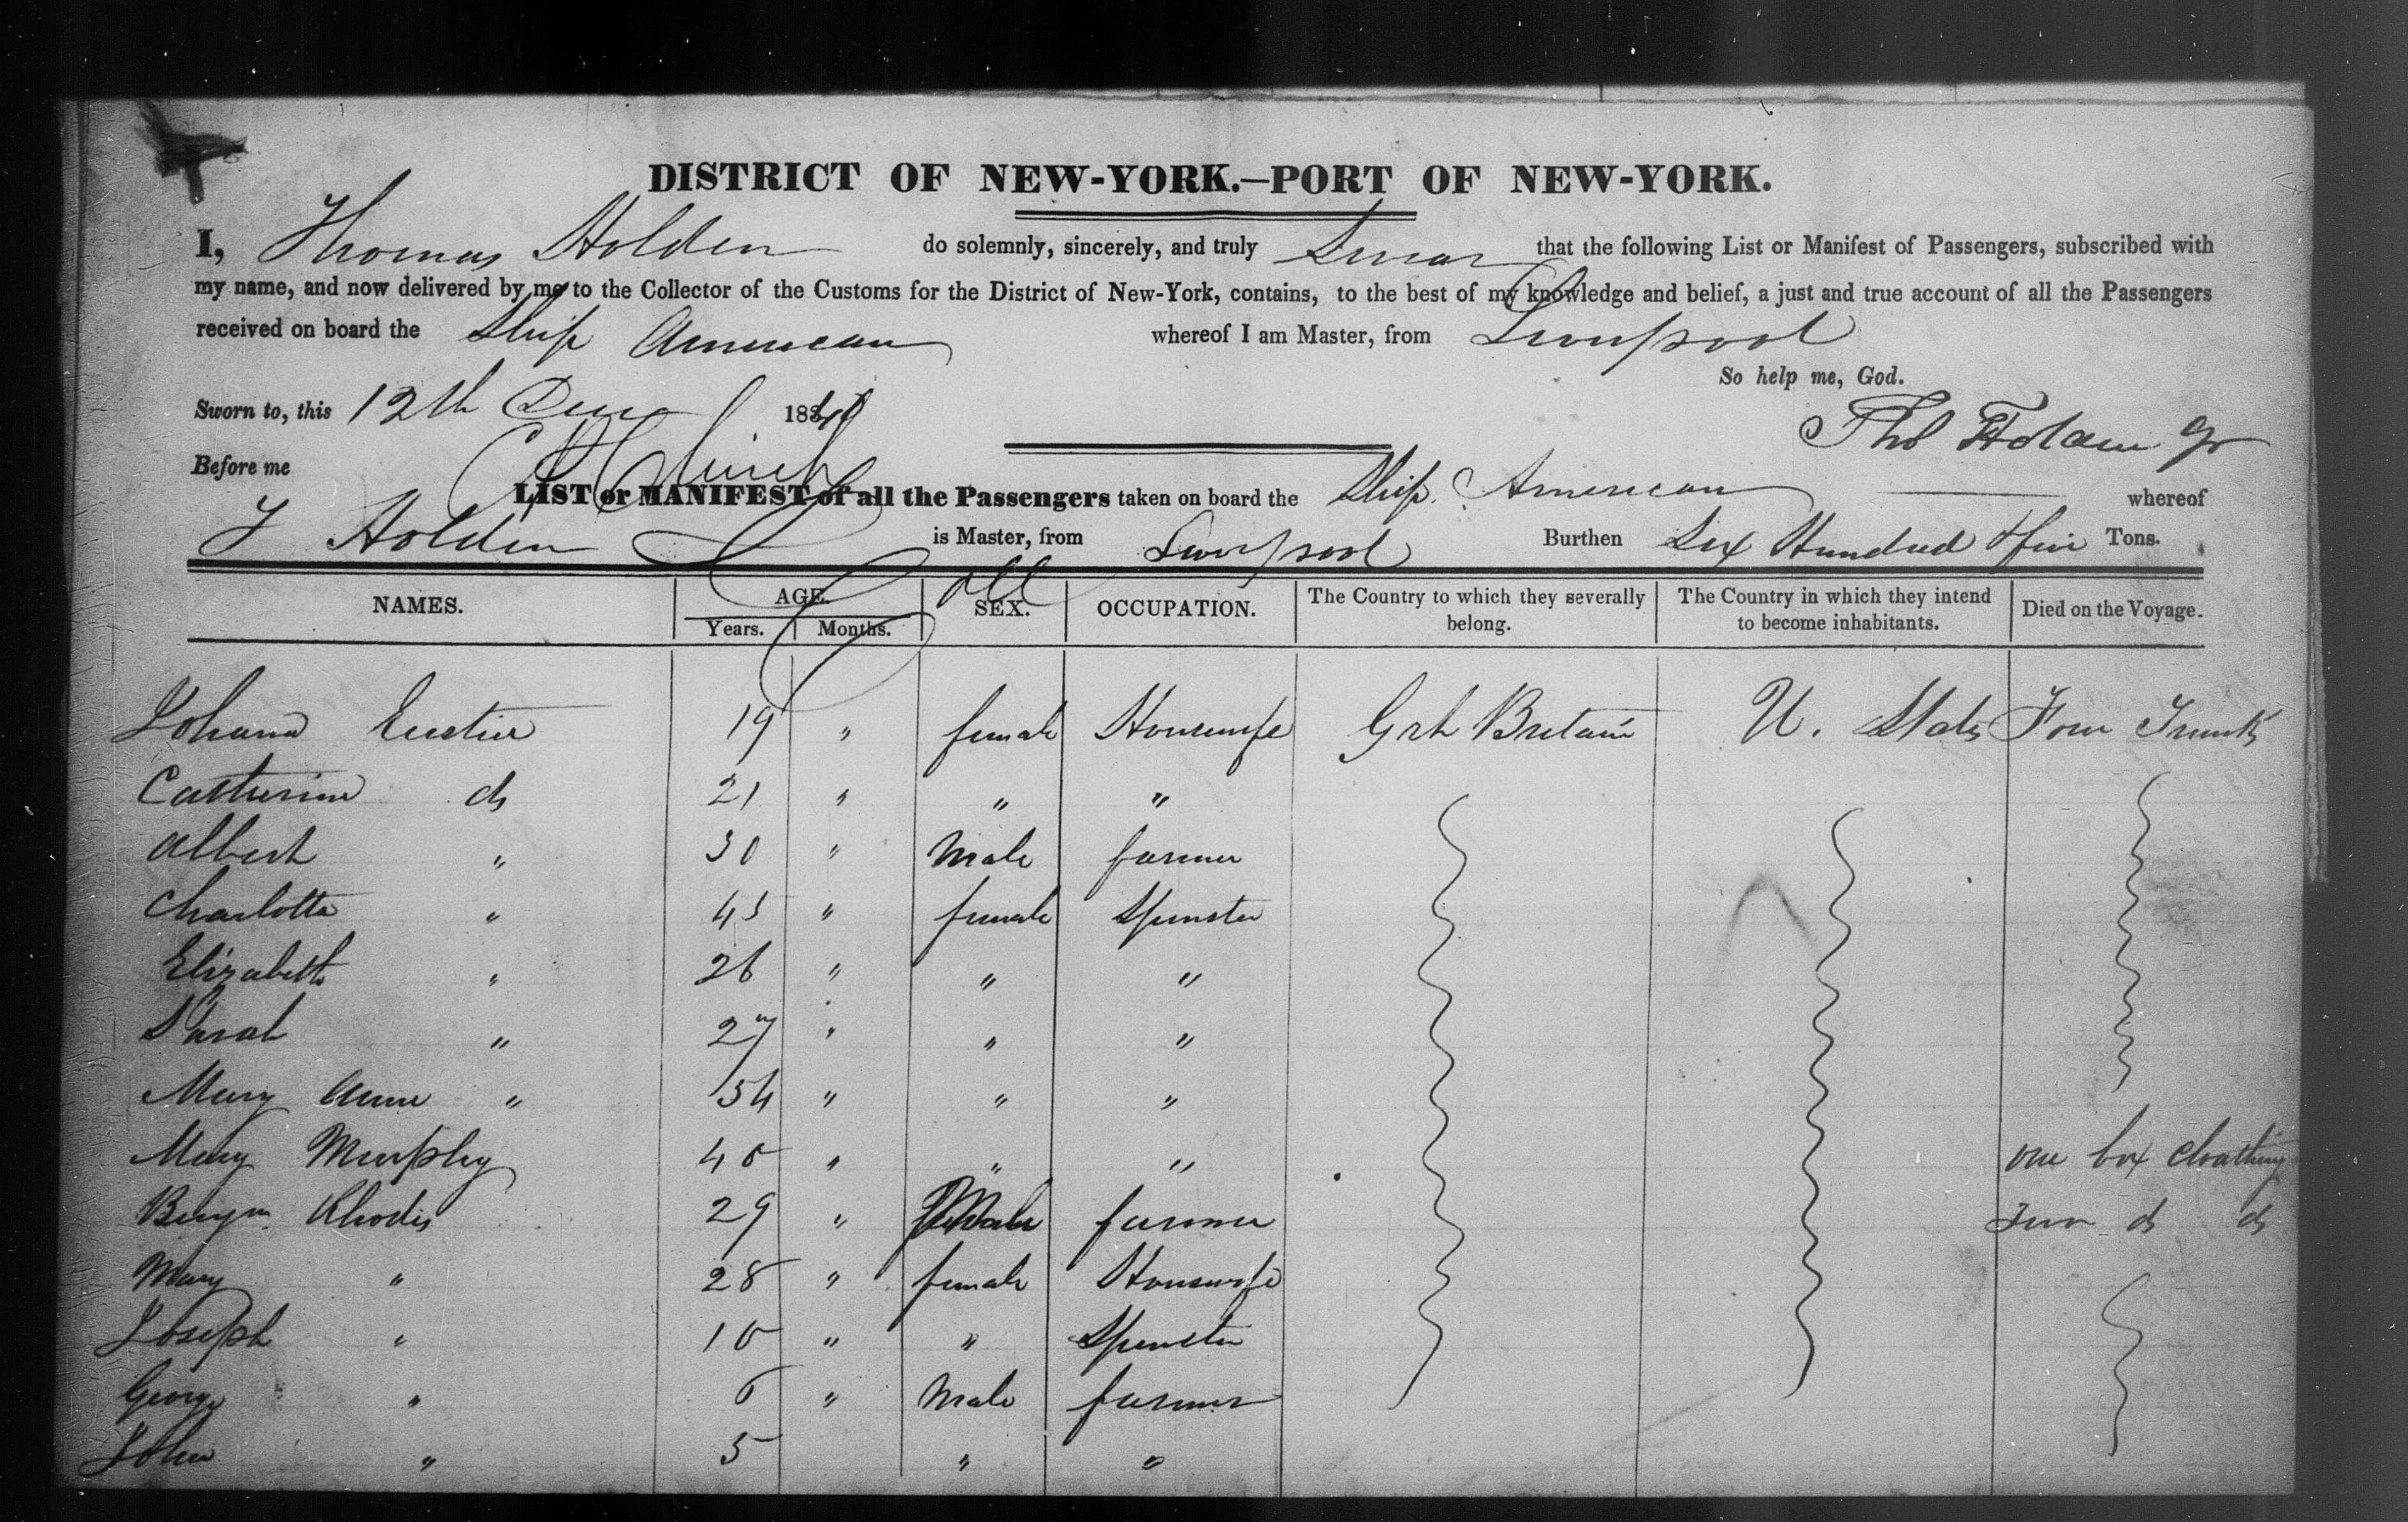 DISTRICT OF NEW-YORK.—PORT OF NEW-YORK.
I, Thomas Holden do solemnly, sincerely, and truly Swear that the following List or Manifest of Passengers, subscribed with
my name, and now delivered by me to the Collector of the Customs for the District of New-York, contains, to the best of my knowledge and belief, a just and true account of all the Passengers
received on board the Ship American whereof I am Master, from Liverpool
So help me, God.
Sworn to, this 12th Decr 1840
Before me
Thos Holden Jr
LIST or MANIFEST of all the Passengers taken on board the Ship American whereof
T Holden is Master, from Liverpool Burthen Six Hundred & five Tons.
NAMES. AGE. Years. Months. SEX. OCCUPATION. The Country to which they severally belong. The Country in which they intend to become inhabitants. Died on the Voyage.
Johana 19 " female Housewife Grt Britain U. States Four Trunks
Catherine do 21 " " "
Albert " 30 " Male farmer
Charlotte " 45 " female Spinster
Elizabeth " 26 " " "
Sarah " 27 " " "
Mary Anne " 54 " " "
Mary Murphy 40 " " " one box cloathing
Benjm Rhodes 29 " Male farmer Two do do
Mary " 28 " female Housewife
Joseph " 10 " " Spinster
George " 6 " Male farmer
John " 5 " "